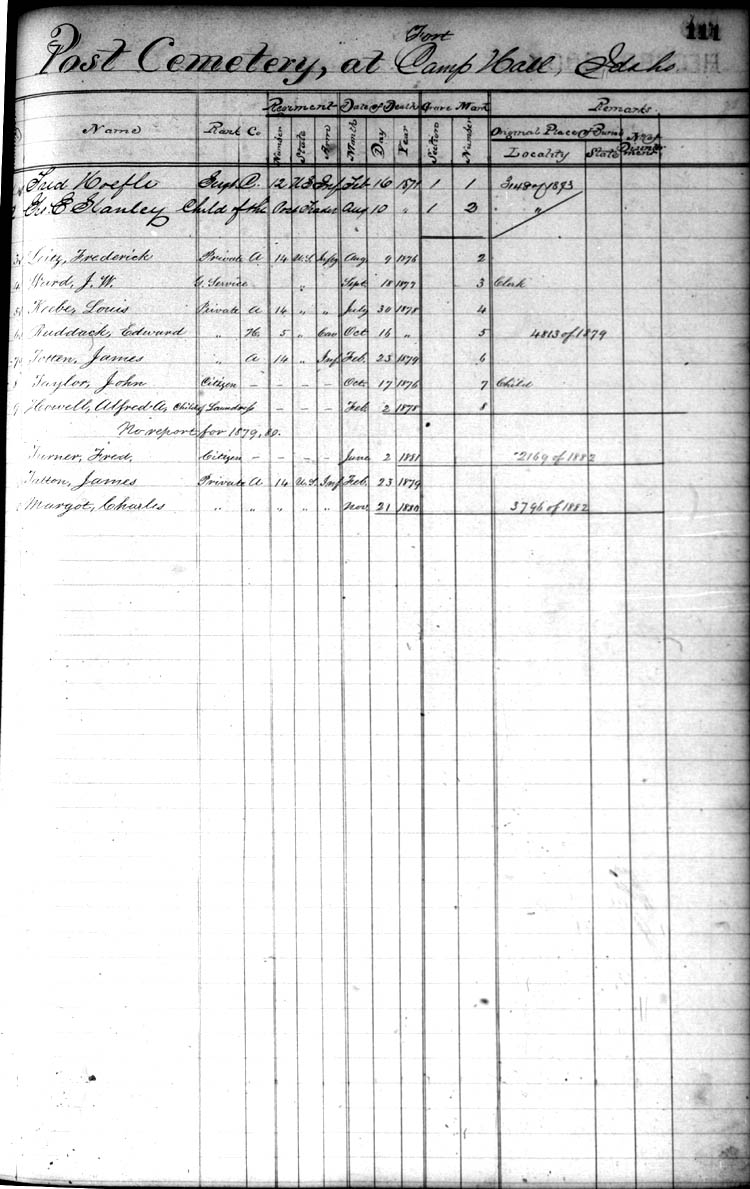 111
Post Cemetery, at Fort Camp Hall, Idaho
Regiment Date of Death Grave Mark Remarks
Name Rank Co Number State Arm Month Day Year Section Number Original Place of Burial Locality State
Fred Hoefle C. 12 U.S. Inf Feb 16 1871 1 1 3148 of 1873
E Stanley Child of the Post Trader Aug 10 " 1 2 "
3 Frederick Private A 14 U.S. Infy Aug. 9 1876 2
4 Ward, J. W. G. Service " Sept 18 1877 3 Clerk
5 Louis Private A 14 " " July 30 1878 4
6 Ruddack, Edward " H. 5 " Cav Oct 16 " 5 4813 of 1879
7 Totten, James " A 14 " Inf Feb. 23 1879 6
8 Taylor, John Citizen – – – – Oct. 17 1876 7 Child
9 Howell, Alfred A, Child of Laundress – – – Feb. 2 1878 8
No report for 1879, 80.
Turner, Fred. Citizen – – – – June 2 1881 2169 of 1882
Tutton, James Private A 14 U.S. Inf Feb. 23 1879
Margot, Charles " " " " " Nov. 21 1880 3796 of 1882